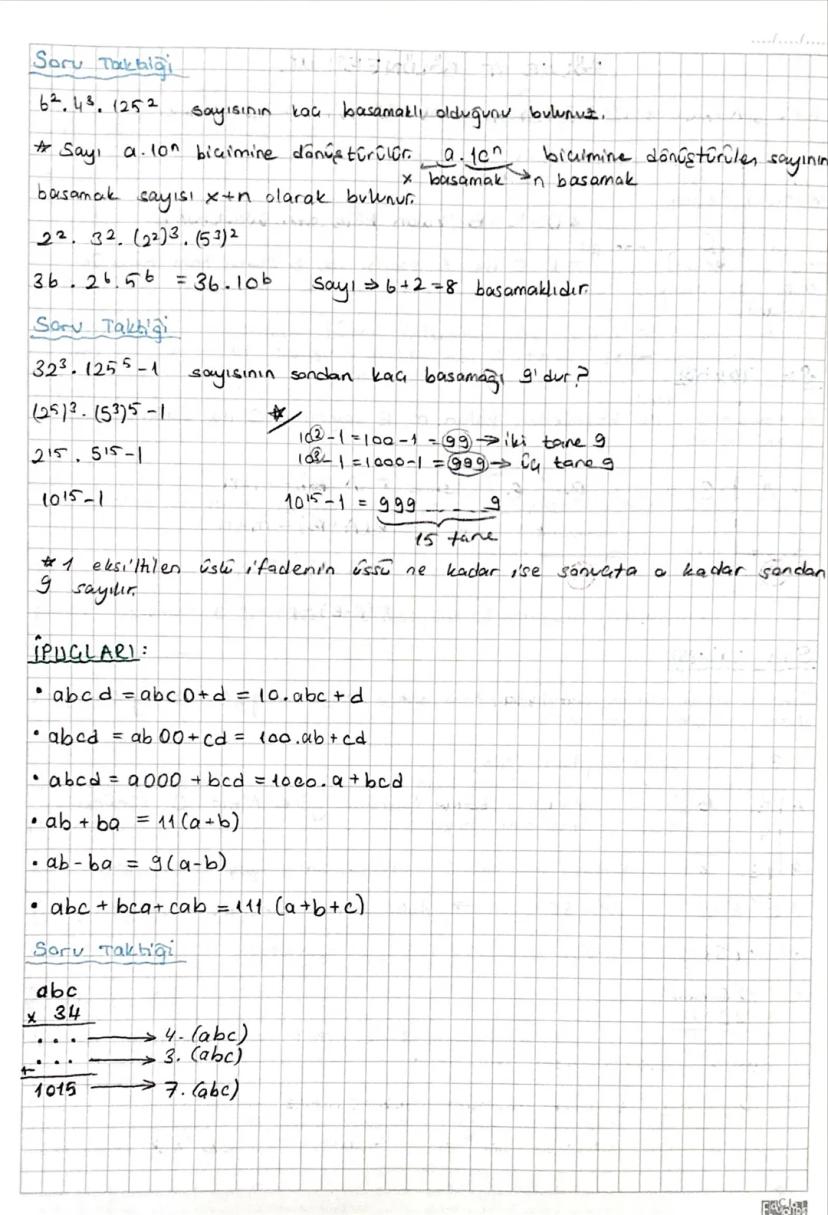 Soru Taktiği
6². 4³. 125² sayısının kaç basamaklı olduğunu bulunuz.
* Sayı a.10ⁿ biçimine dönüştürülür. a.10ⁿ biçimine dönüştürülen sayının
x basamak n basamak
basamak sayısı x+n olarak bulunur.
2². 3². (2²)³. (5³)²
36 . 2⁶. 5⁶ = 36.10⁶ Sayı ⇒ 6+2=8 basamaklıdır.
Soru Taktiği
32³. 125⁵-1 sayısının sondan kaç basamağı 9'dur?
(2⁵)³. (5³)⁵-1
*
10²-1=100-1=99 → iki tane 9
2¹⁵. 5¹⁵-1
10³-1=1000-1=999 → üç tane 9
10¹⁵-1
10¹⁵-1 = 999 ---- 9
15 tane
* 1 eksiltilen üslü ifadenin üssü ne kadar ise sonuçta o kadar sondan
9 sayılır.
İPUÇLARI:
• abcd = abc0+d = 10.abc+d
• abcd = ab00+cd = 100.ab+cd
• abcd = a000+bcd = 1000.a+bcd
• ab+ba = 11(a+b)
• ab-ba = 9(a-b)
• abc+bca+cab = 111 (a+b+c)
Soru Taktiği
abc
x 34
... → 4.(abc)
+ ... → 3.(abc)
1015 → 7.(abc)